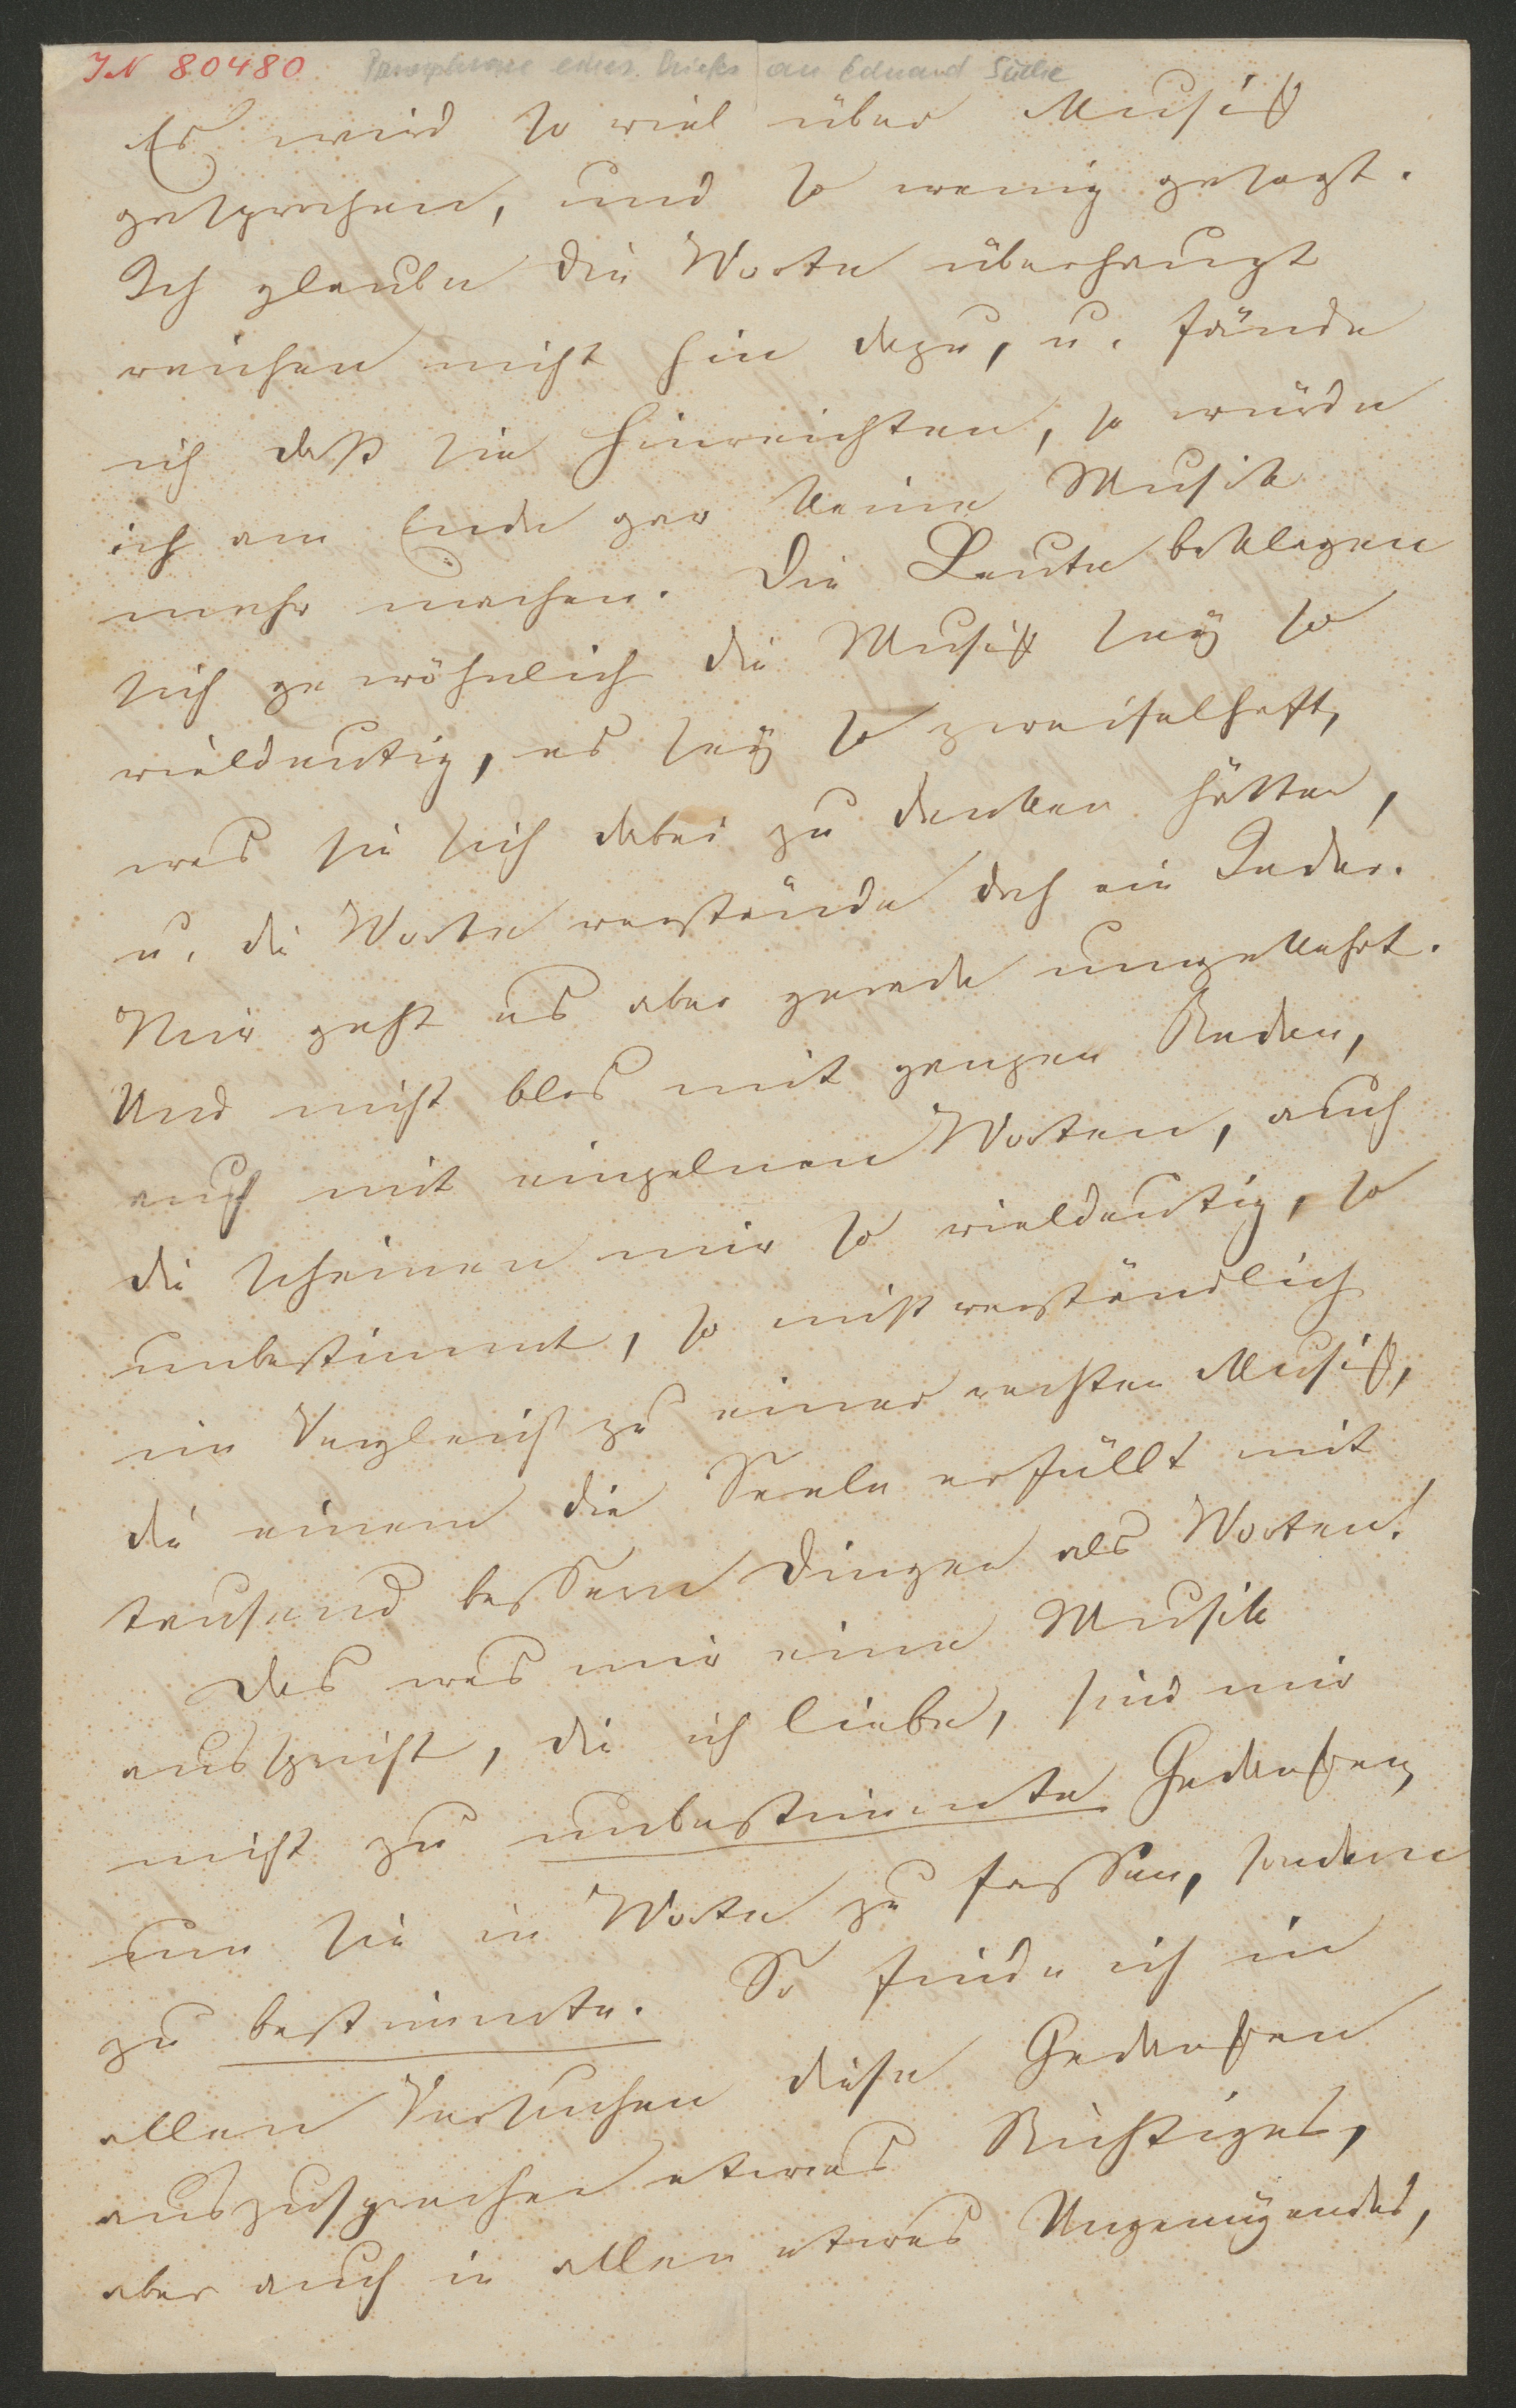 IN 80480 Paraphrase eines Briefes an Eduard
Es wird so viel über Musik
gesprochen, und so wenig gesagt.
Ich glaube die Worte überhaupt
reichen nicht hin dazu, u. fände
ich daß sie hinreichten, so würde
ich am Ende gar keine Musik
mehr machen. Die Leute beklagen
sich gewöhnlich die Musik sey so
vieldeutig, es sey so zweifelhaft,
was sie sich dabei zu denken hätten,
u. die Worte verstände doch ein Jeder.
Mir geht es aber gerade umgekehrt.
Und nicht blos mit ganzen Reden,
auch mit einzelnen Worten, auch
die scheinen mir so vieldeutig, so
unbestimmt, so mißverständlich
im Vergleich zu einer rechten Musik,
die einem die Seele erfüllt mit
tausend bessern Dingen als Worten.
Das was mir eine Musik
ausspricht, die ich liebe, sind mir
nicht zu unbestimmte Gedanken,
um sie in Worte zu fassen, sondern
zu bestimmte. So finde ich in
allen Versuchen diese Gedanken
auszusprechen etwas Richtiges,
aber auch in allen etwas Ungenügendes,